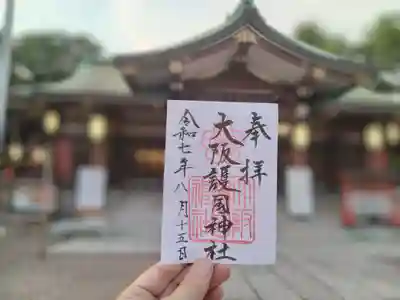 奉拝
大阪護國神社
令和七年八月十五日